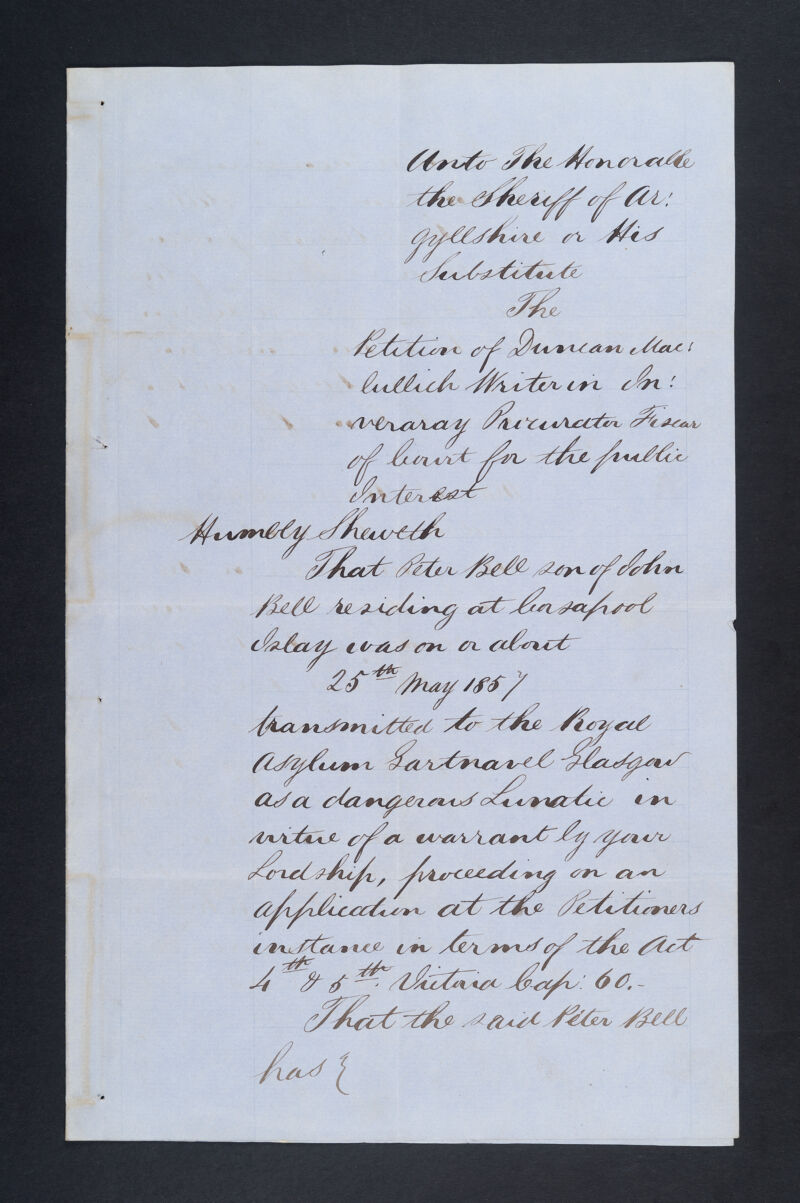 Unto The Honorable
the Sheriff of Ar:
gyllshire or His
Substitute
The
Petition of Duncan Mac:
lullich Writer in In:
veraray Procurator Fiscal
of Court for the public
Interest
Humbly Sheweth
That Peter Bell son of John
Bell residing at Corsapool
Islay was on or about
25th May 1857
transmitted to the Royal
Asylum Gartnavel Glasgow
as a dangerous Lunatic in
virtue of a warrant by your
Lordship, proceeding on an
application at the Petitioners
instance in terms of the Act
4th & 5th Victoria Cap: 60.-
That the said Peter Bell
has